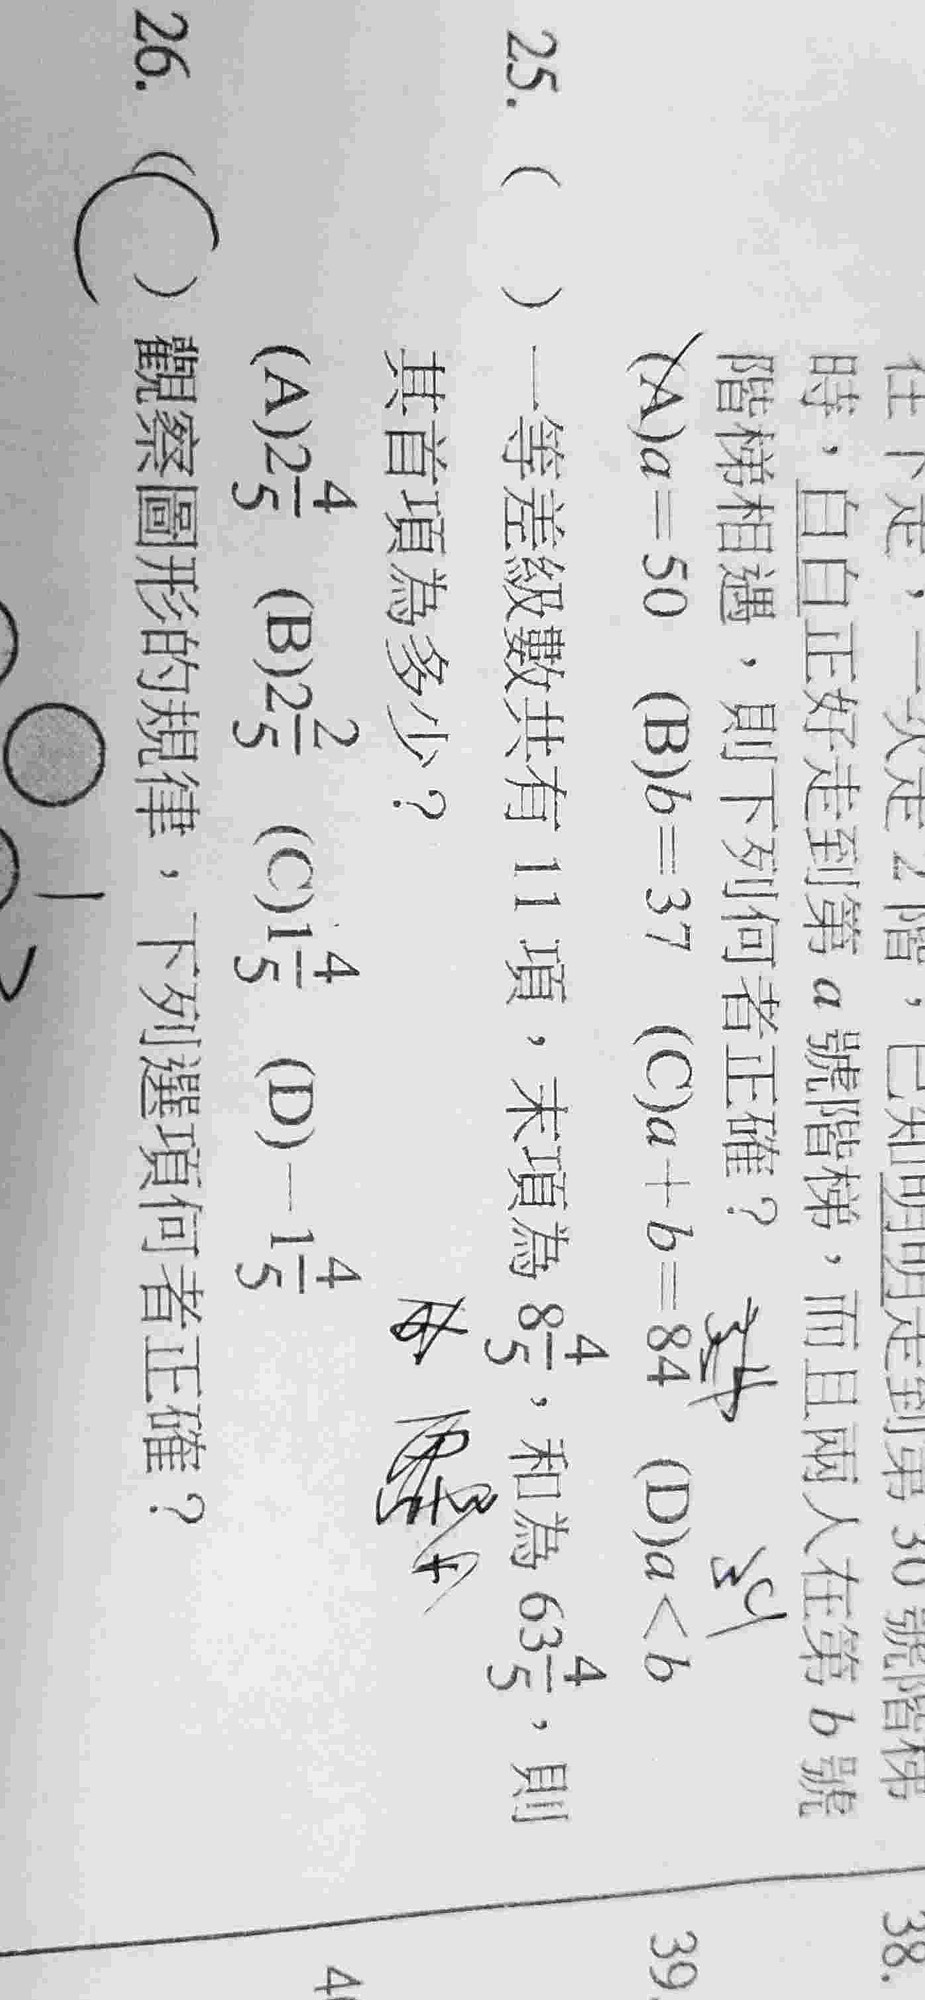 往下走，一次走 2 階，已知明明走到第 30 號階梯
時，白白正好走到第 a 號階梯，而且兩人在第 b 號
階梯相遇，則下列何者正確？
(A)a＝50 (B)b＝37 (C)a＋b＝84 (D)a＜b
25. ( ) 一等差級數共有 11 項，末項為 8 4/5，和為 63 4/5，則
其首項為多少？
(A)2 4/5 (B)2 2/5 (C)1 4/5 (D)－1 4/5
26. ( ) 觀察圖形的規律，下列選項何者正確？
38.
39.